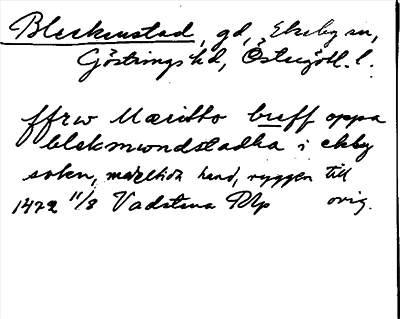 Bleckenstad, gd, Ekeby sn,
Göstrings hd, Östergötl. l.
ffrw Mæritto buff oppa
blekmwndstadha i ekby
sokn, medeltida hand, ryggen till
1472 11/8 Vadstena Rlp orig.